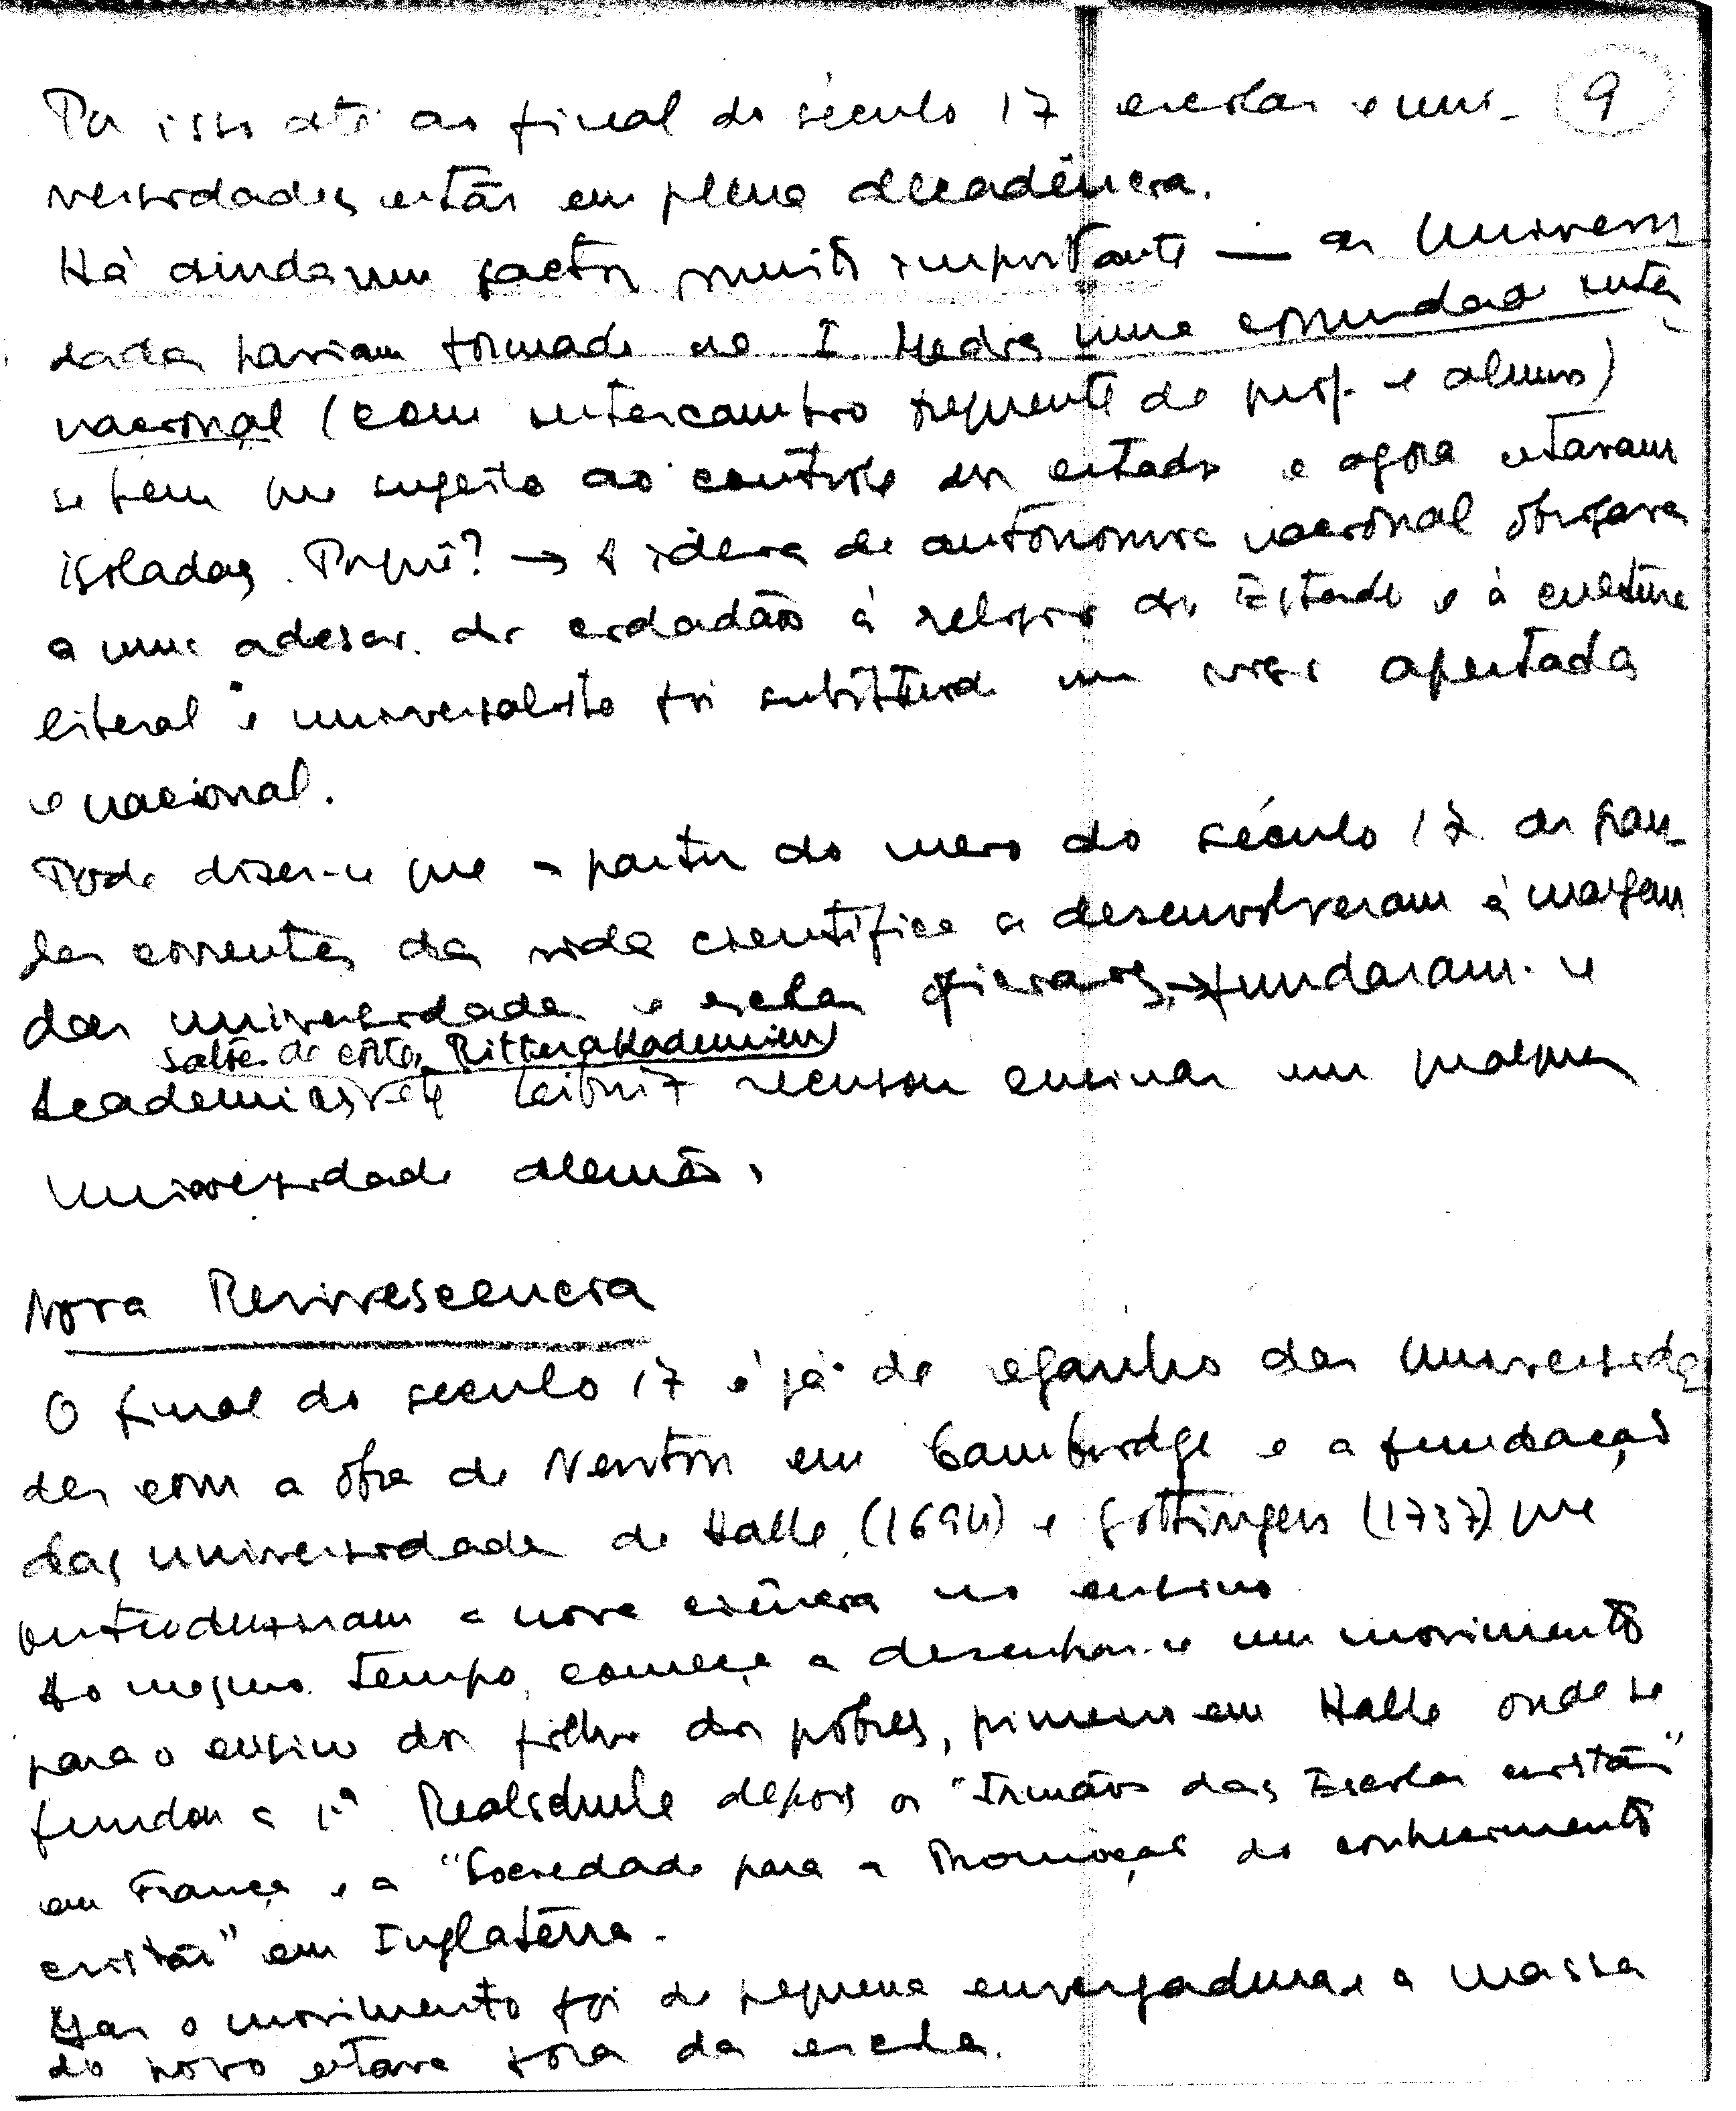 Por isso até ao final do século 17 escolas e uni-
9
versidades estão em plena decadência.
Há ainda um factor muito importante — as Universi
dades haviam formado na I. Media uma comunidade inter
nacional (com intercambio frequente de prof. e alunos)
se bem que sugeito ao controle do estado e agora estavam
isoladas. Porquê? → A ideia de autonomia nacional obrigava
a uma adesão do cidadão à religião do Estado e à cultura
liberal e universalista foi substituida uma visão apertada
e nacional.
Pode dizer-se que a partir do meio do século 17 as gran-
des correntes da vida cientifica se desenvolveram à margem
das universidades e escolas oficiais, → fundaram-se
salões de corte, Ritterakademien
Academias, etc Leibniz recusou ensinar em qualquer
Universidade alemã.
Nova Revivescencia
O final do seculo 17 é já de reganho das Universida
des com a obra de Newton em Cambridge e a fundação
das universidades de Halle (1694) e Gottingen (1737) que
introduziram a nova ciência no ensino
Ao mesmo tempo, começa a desenhar-se um movimento
para o ensino dos filhos dos pobres, primeiro em Halle onde se
fundou a 1ª Realschule depois os "Irmãos das Escolas cristãs"
em França e a "Sociedade para a Promoção do conhecimento
cristão" em Inglaterra.
Mas o movimento foi de pequena envergadura e a massa
do povo estava fora da escola.